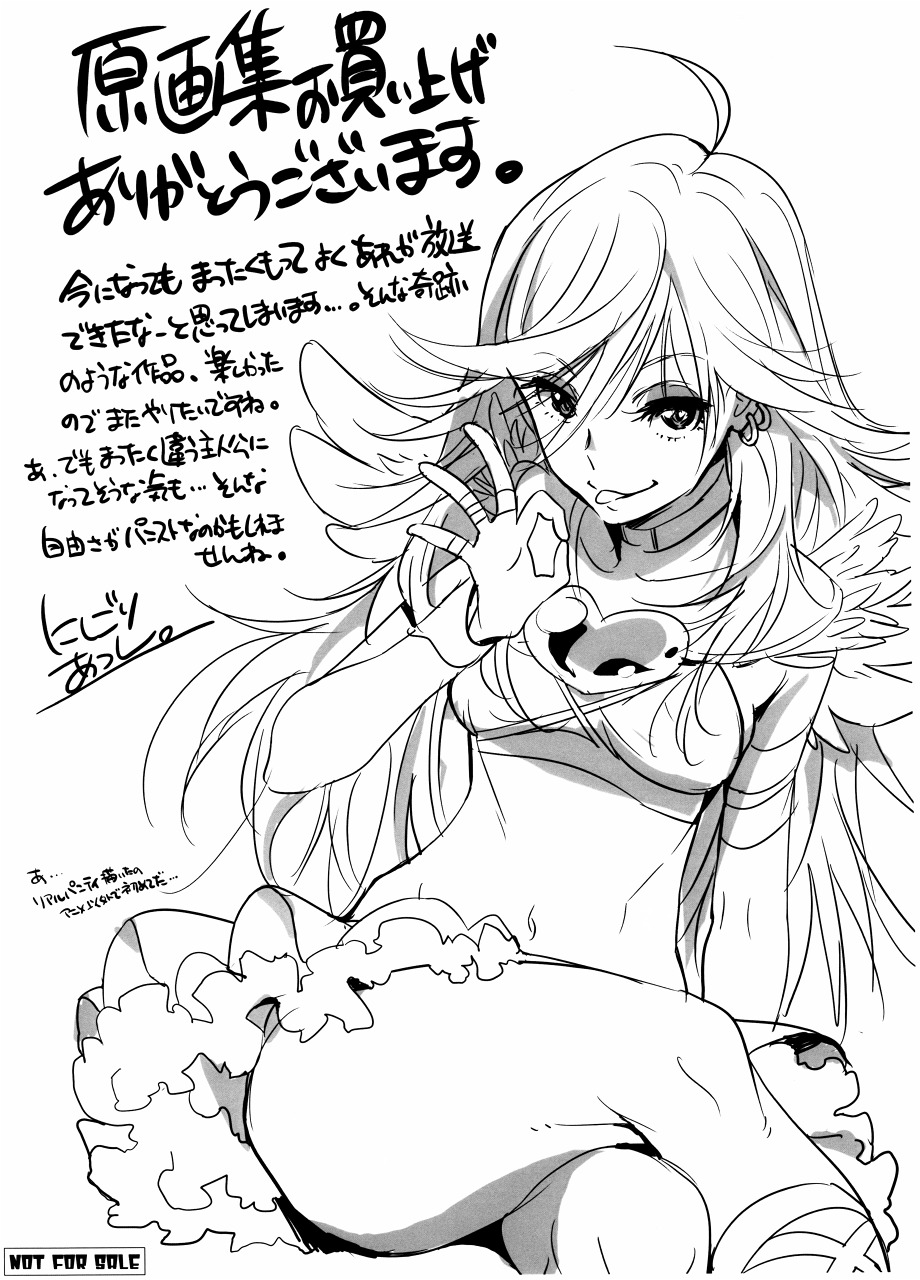 原画集お買い上げ
ありがとうございます。
今になっても まったくもって よく あれが 放送
できたなーと思ってしまいます…。そんな奇跡
のような作品、楽しかった
のでまたやりたいですね。
あ、でもまったく違う主人公に
なってそうな気も…そんな
自由さがパンストなのかもしれま
せんね。
にしごり
あつし。
あ…
リアルパンティ描いたの
アニメぶくろで初めてだ…
NOT FOR SALE